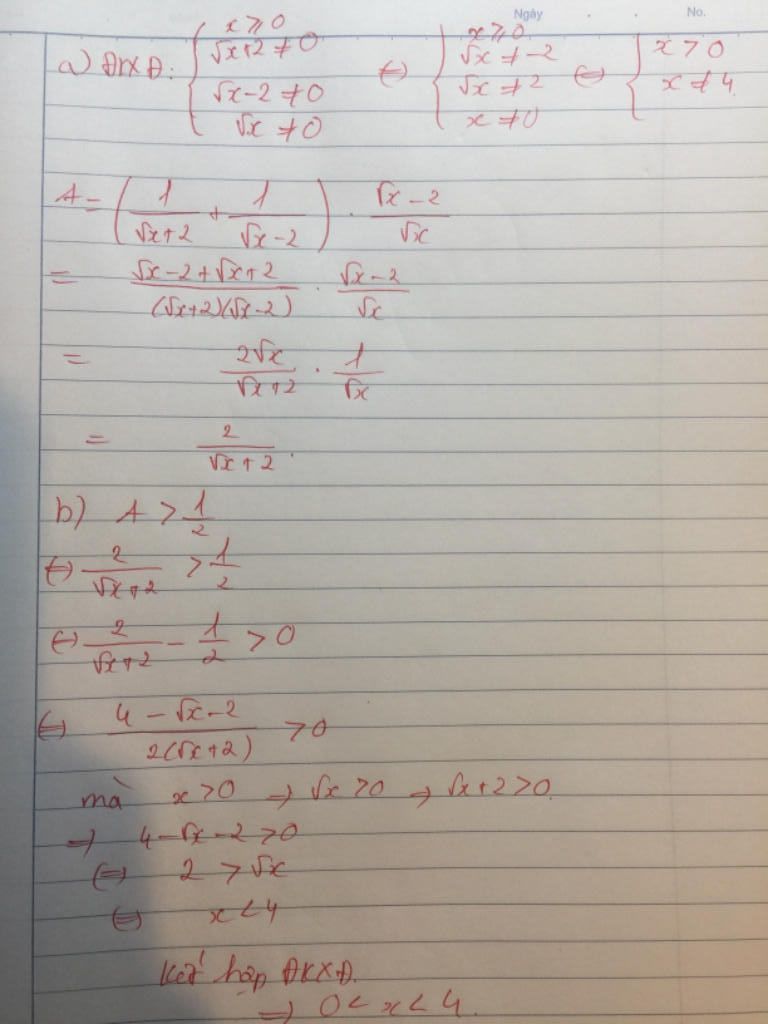 Ngày . . No.
a) ĐKXĐ: { x ≥ 0 ; √x+2 ≠ 0 ; √x-2 ≠ 0 ; √x ≠ 0 ⇔ { x ≥ 0 ; √x ≠ -2 ; √x ≠ 2 ; x ≠ 0 ⇔ { x > 0 ; x ≠ 4
A = (1/(√x+2) + 1/(√x-2)) . (√x-2)/√x
= (√x-2+√x+2)/((√x+2)(√x-2)) . (√x-2)/√x
= 2√x/(√x+2) . 1/√x
= 2/(√x+2).
b) A > 1/2
⇔ 2/(√x+2) > 1/2
⇔ 2/(√x+2) - 1/2 > 0
⇔ (4-√x-2)/(2(√x+2)) > 0
mà x > 0 ⇒ √x > 0 ⇒ √x+2 > 0.
⇒ 4-√x-2 > 0
⇔ 2 > √x
⇔ x < 4
Kết hợp ĐKXĐ.
⇒ 0 < x < 4.